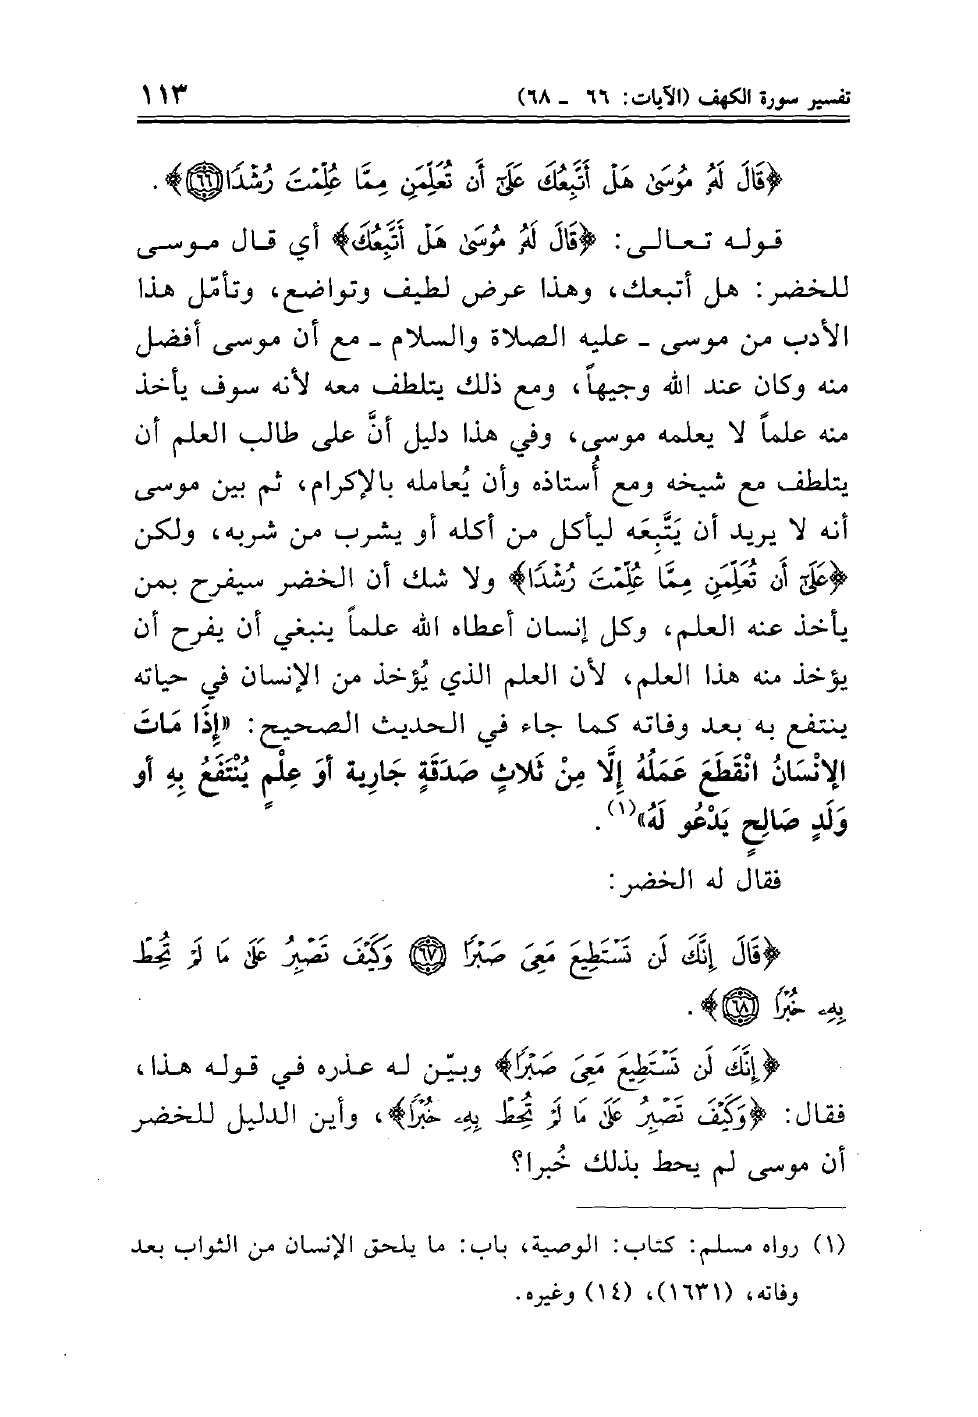 تفسير سورة الكهف (الآيات: ٦٦ - ٦٨) ١١٣
﴿قَالَ لَهُ مُوسَىٰ هَلْ أَتَّبِعُكَ عَلَىٰٓ أَن تُعَلِّمَنِ مِمَّا عُلِّمْتَ رُشْدًا ٦٦﴾.
قـولـه تـعـالـى: ﴿قَالَ لَهُ مُوسَىٰ هَلْ أَتَّبِعُكَ﴾ أي قـال مـوسـى
للخضر: هل أتبعك، وهذا عرض لطيف وتواضع، وتأمّل هذا
الأدب من موسى ـ عليه الصلاة والسلام ـ مع أن موسى أفضل
منه وكان عند الله وجيهاً، ومع ذلك يتلطف معه لأنه سوف يأخذ
منه علماً لا يعلمه موسى، وفي هذا دليل أنَّ على طالب العلم أن
يتلطف مع شيخه ومع أُستاذه وأن يُعامله بالإكرام، ثم بين موسى
أنه لا يريد أن يَتَّبِعَه ليأكل من أكله أو يشرب من شربه، ولكن
﴿عَلَىٰٓ أَن تُعَلِّمَنِ مِمَّا عُلِّمْتَ رُشْدًا﴾ ولا شك أن الخضر سيفرح بمن
يأخذ عنه العلم، وكل إنسان أعطاه الله علماً ينبغي أن يفرح أن
يؤخذ منه هذا العلم، لأن العلم الذي يُؤخذ من الإنسان في حياته
ينتفع به بعد وفاته كما جاء في الحديث الصحيح: «إِذَا مَاتَ
الإنْسَانُ انْقَطَعَ عَمَلُهُ إِلَّا مِنْ ثَلاثٍ صَدَقَةٍ جَارِية أوَ عِلْمٍ يُنْتَفَعُ بِهِ أو
وَلَدٍ صَالِحٍ يَدْعُو لَهُ»(١).
فقال له الخضر:
﴿قَالَ إِنَّكَ لَن تَسْتَطِيعَ مَعِىَ صَبْرًا ٦٧ وَكَيْفَ تَصْبِرُ عَلَىٰ مَا لَمْ تُحِطْ
بِهِۦ خُبْرًا ٦٨﴾.
﴿إِنَّكَ لَن تَسْتَطِيعَ مَعِىَ صَبْرًا﴾ وبيّن له عذره في قوله هذا،
فقال: ﴿وَكَيْفَ تَصْبِرُ عَلَىٰ مَا لَمْ تُحِطْ بِهِۦ خُبْرًا﴾، وأين الدليل للخضر
أن موسى لم يحط بذلك خُبرا؟
(١) رواه مسلم: كتاب: الوصية، باب: ما يلحق الإنسان من الثواب بعد
وفاته، (١٦٣١)، (١٤) وغيره.